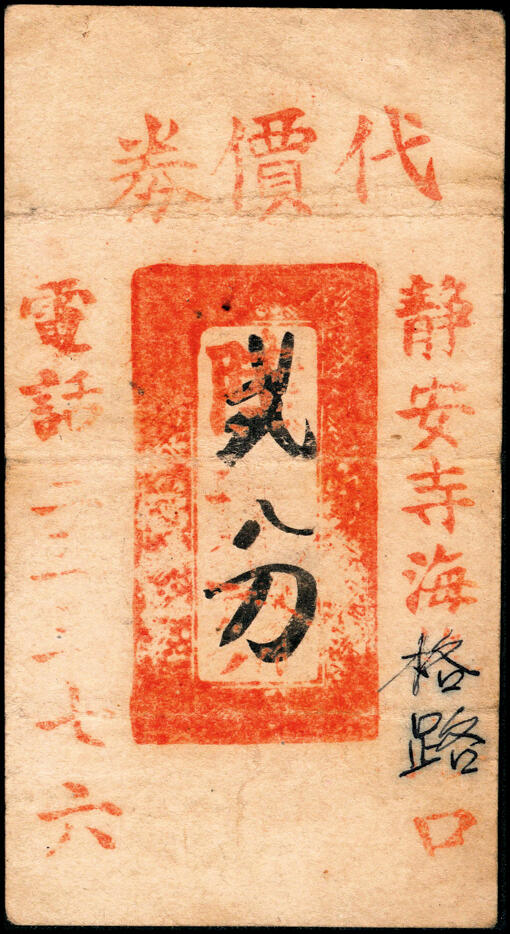 代價券
静安寺海格路口
分
電話二三二七六